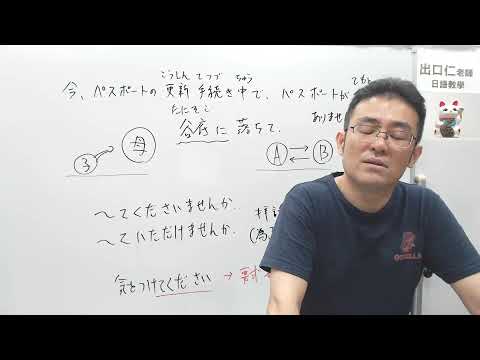 こうしん てつづ ちゅう
今、パスポートの更新手続き中で、パスポートが
たにぞこ
ありませ
谷底に落ちて.
子 → 母
A ⇄ B
〜てくださいませんか.
〜ていただけませんか.
気をつけてください →
出口仁老師
日語教學